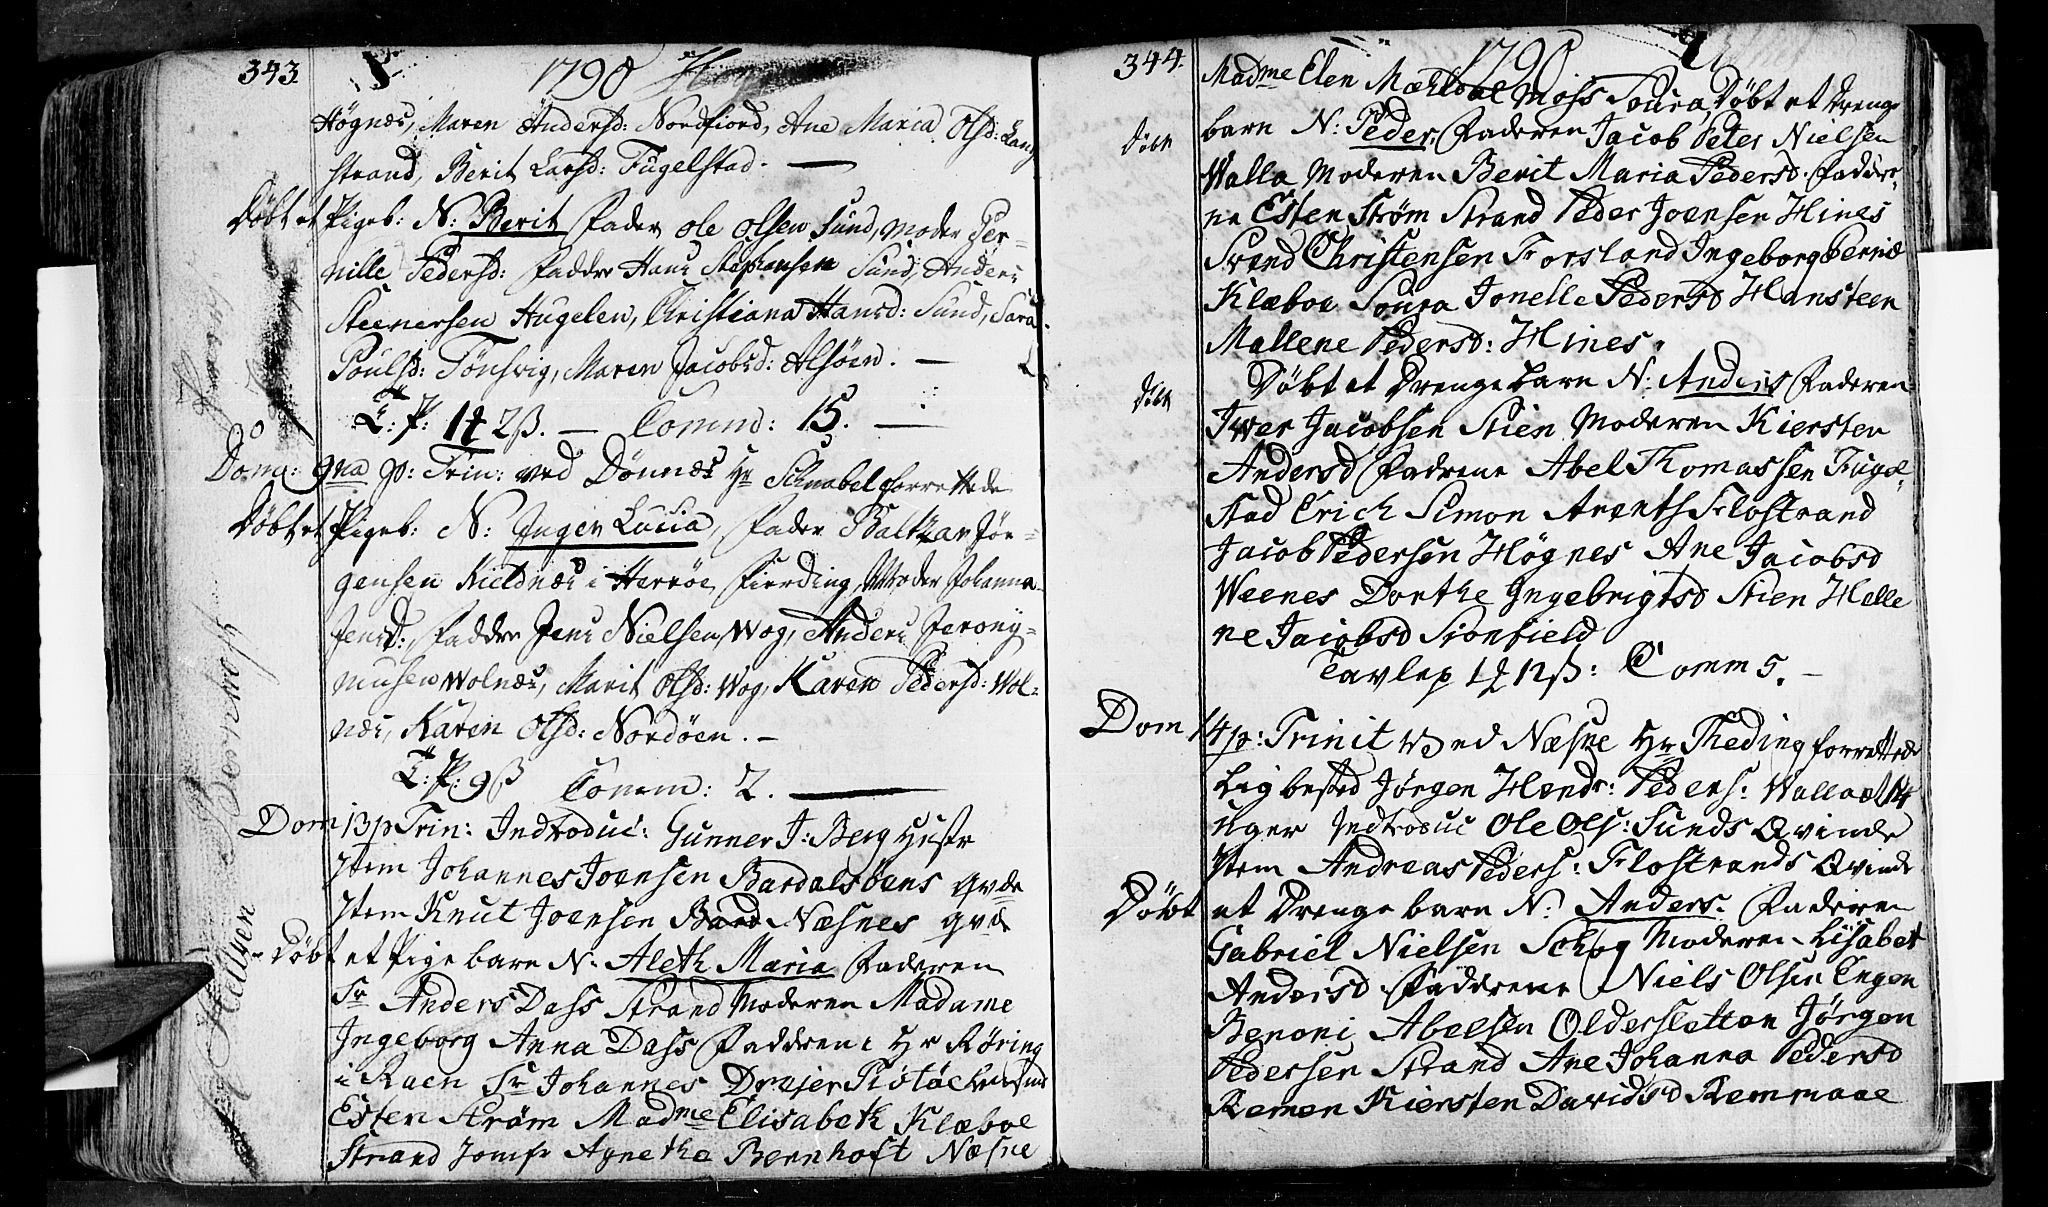 343
1790
Høgnæs, Maren Andersd: Nordfiord, Ane Maria Olsd: Lang
strand, Berit Larsd: Fugelstad. —
Døbt et Pigeb: N: Berit Fader Ole Olsen Sund, Moder Per-
nille Pedersd: Faddre Hans Stephansen Sund, Anders
Steenersen Hugelen, Christiana Hansd: Sund, Sara
Poulsd: Tønsvig, Maren Jacobsd: Alsøen. —
T: P: 1 2ß. — Comm: 15. —
Dom: 9na p: Trin: ved Dønnæs Hr Schnabel forrettede
Døbt et Pigeb: N: Inger Lucia, Fader Balthzar Jør-
gensen Kieldnæs i Herrøe Fierding, Moder Johanna
Jensd:, Faddre Jens Nielsen Wog, Anders Jerony-
musen Wolnæs, Marit Olsd: Wog, Karen Pedersd: Wol-
næs, Karen Olsd: Nordøen. —
T: P: 9ß Comm: 2. —
Dom 13 p Trin: Introduc: Gunner J: Berg Hustr
Item Johannes Joensen Bardalsøens qvde
Item Knut Joensen Næsnes qvd
Døbt et Pige barn N: Aleth Maria Faderen
Sr Anders Dass Strand Moderen Madame
Ingeborg Anna Dass Faddrene Hr Røring
i Raen Sr Johannes Drejer
Esten Strøm Madme Elisabeth Klæboe
Strand Jomfr Agnetha Bernhoft Næsne
344.
1790
Madme Elen Mæhldal Moss Soura, Døbt et Drenge
Døbt
barn N: Peder, Faderen Jacob Peter Nielsen
Walla Moderen Berit Maria Pedersd. Faddre-
ne Esten Strøm Strand Peder Joensen Hines
Svend Christensen Forsland Ingeborg
Klæboe Soura Jonelle Pedersd Hansteen
Mallene Pedersd: Hines.
Døbt
Døbt et Drenge barn N: Anders Faderen
Iwer Jacobsen Stien Moderen Kiersten
Andersd Fadrene Abel Thomassen Fugel-
stad Erich Simon Arents Flostrand
Jacob Pedersen Høgnes Ane Jacobsd
Weenes Dorthe Ingebrigtsd Stien Helle
ne Jacobsd Sionfield
Tavlep 1 12ß: Comm 5. —
Dom 14 p: Trinit ved Næsne Hr Theding forrettede
Ligbested Jørgen Hendr: Peders: Walla æt 14
uger Introduc Ole Ols: Sunds Qvinde
Item Andreas Peders: Flostrands Qvinde
Døbt et Drenge barn N: Anders. Faderen
Gabriel Nielsen Schog Moderen Lisabet
Andersd Faddrene Niels Olsen Engen
Benoni Abelsen Oldersletten Jørgen
Pedersen Strand Ane Johanna Pedersd
Remen Kiersten Davidsd Remmaae